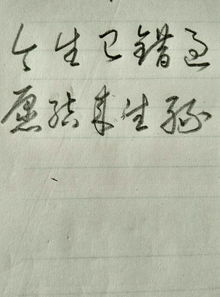 今生已错过
愿结来生缘